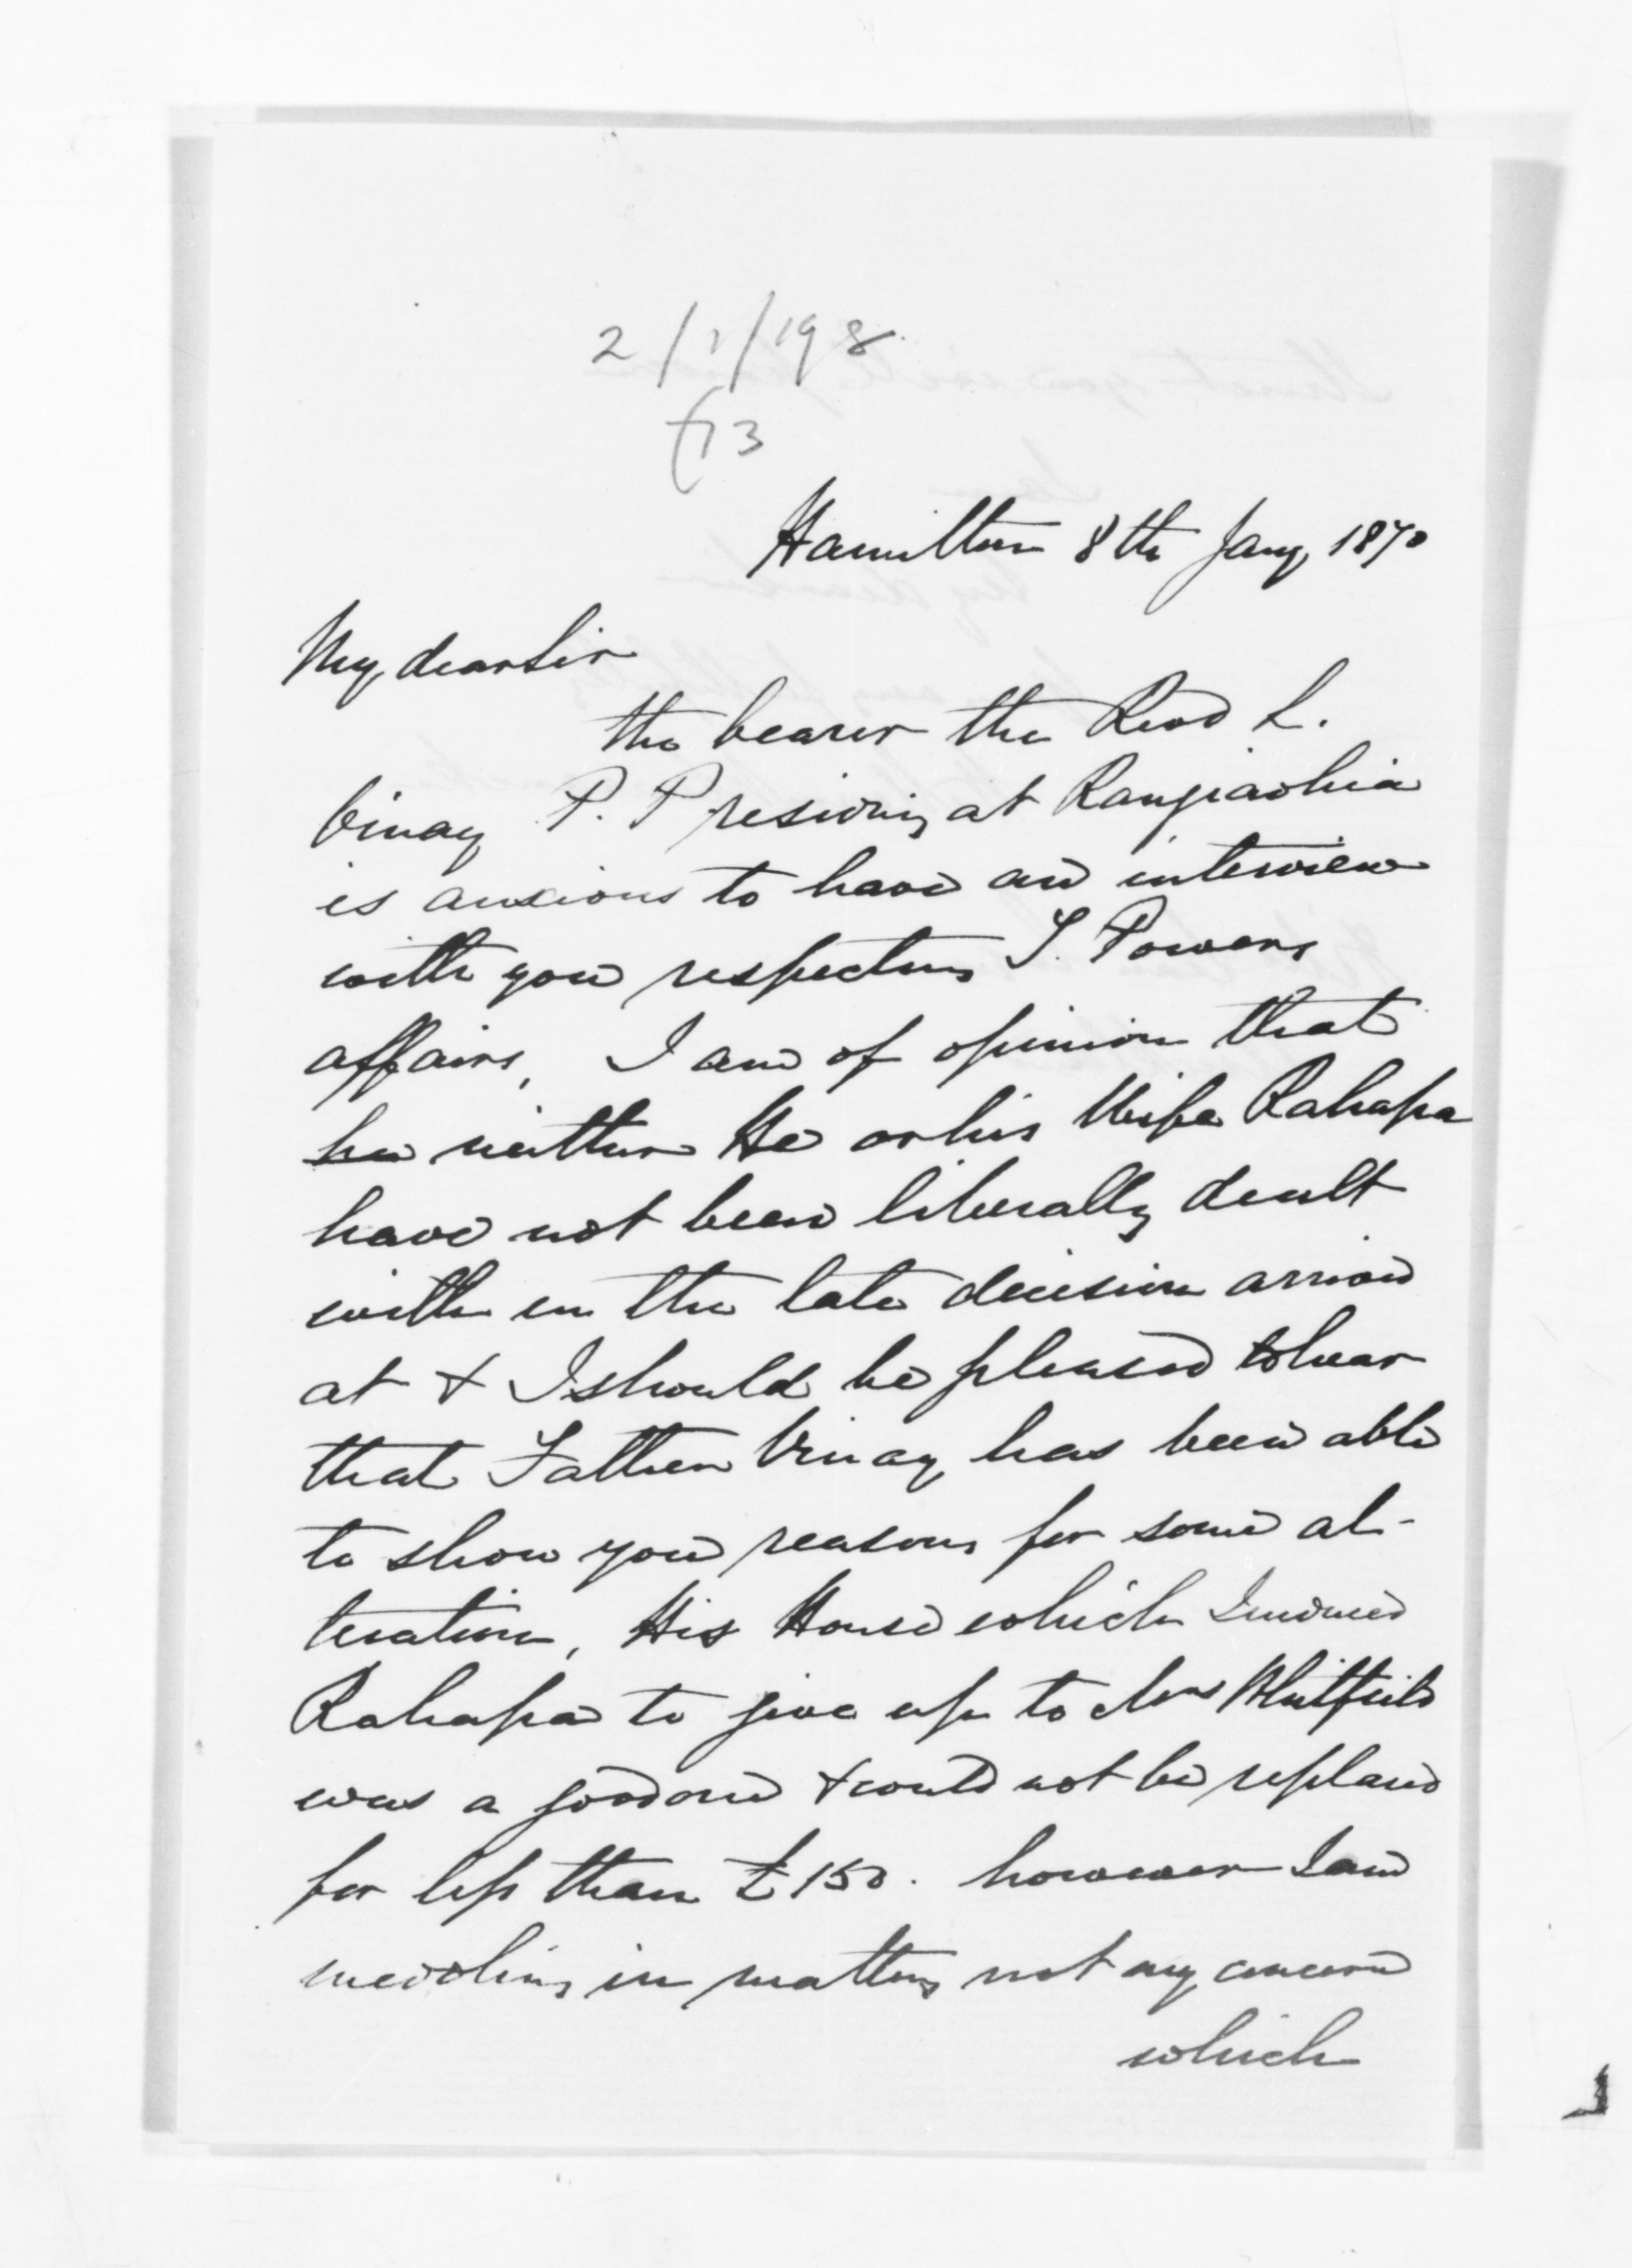 2/1/198
f13
Hamilton 8th Jany 1870
My dear Sir
the bearer the Revd L.
Vinay P. P residing at Rangiaohia
is anxious to have an interview
with you respecting T. Powers
affairs, I am of opinion that
he neither He or his Wife Rahapa
have not been liberally dealt
with in the late decision arrived
at & I should be pleased to hear
that Father Vinay has been able
to show you reasons for some al-
teration, His House which I induced
Rahapa to give up to Mrs Whitfield
was a good one & could not be replaced
for less than £150. however I am
meddling in matters not my concern
which